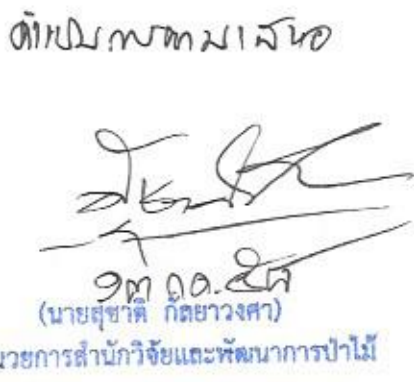 ดำเนินการตามเสนอ
๑๓ ก.ค. ๕๘
(นายสุชาติ กัลยาวงศา)
นวยการสำนักวิจัยและพัฒนาการป่าไม้